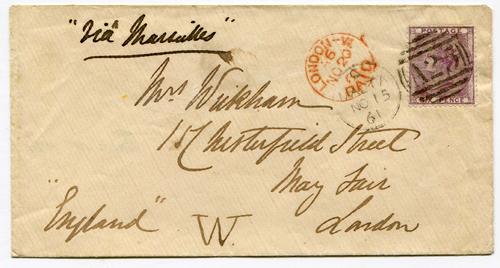 "Via Marseilles"
LONDON
NO 20
PAID
MALTA
NO 15
61
POSTAGE
A25
SIX PENCE
Mrs Wickham
17 Chesterfield Street
May Fair
London
"England"
W.